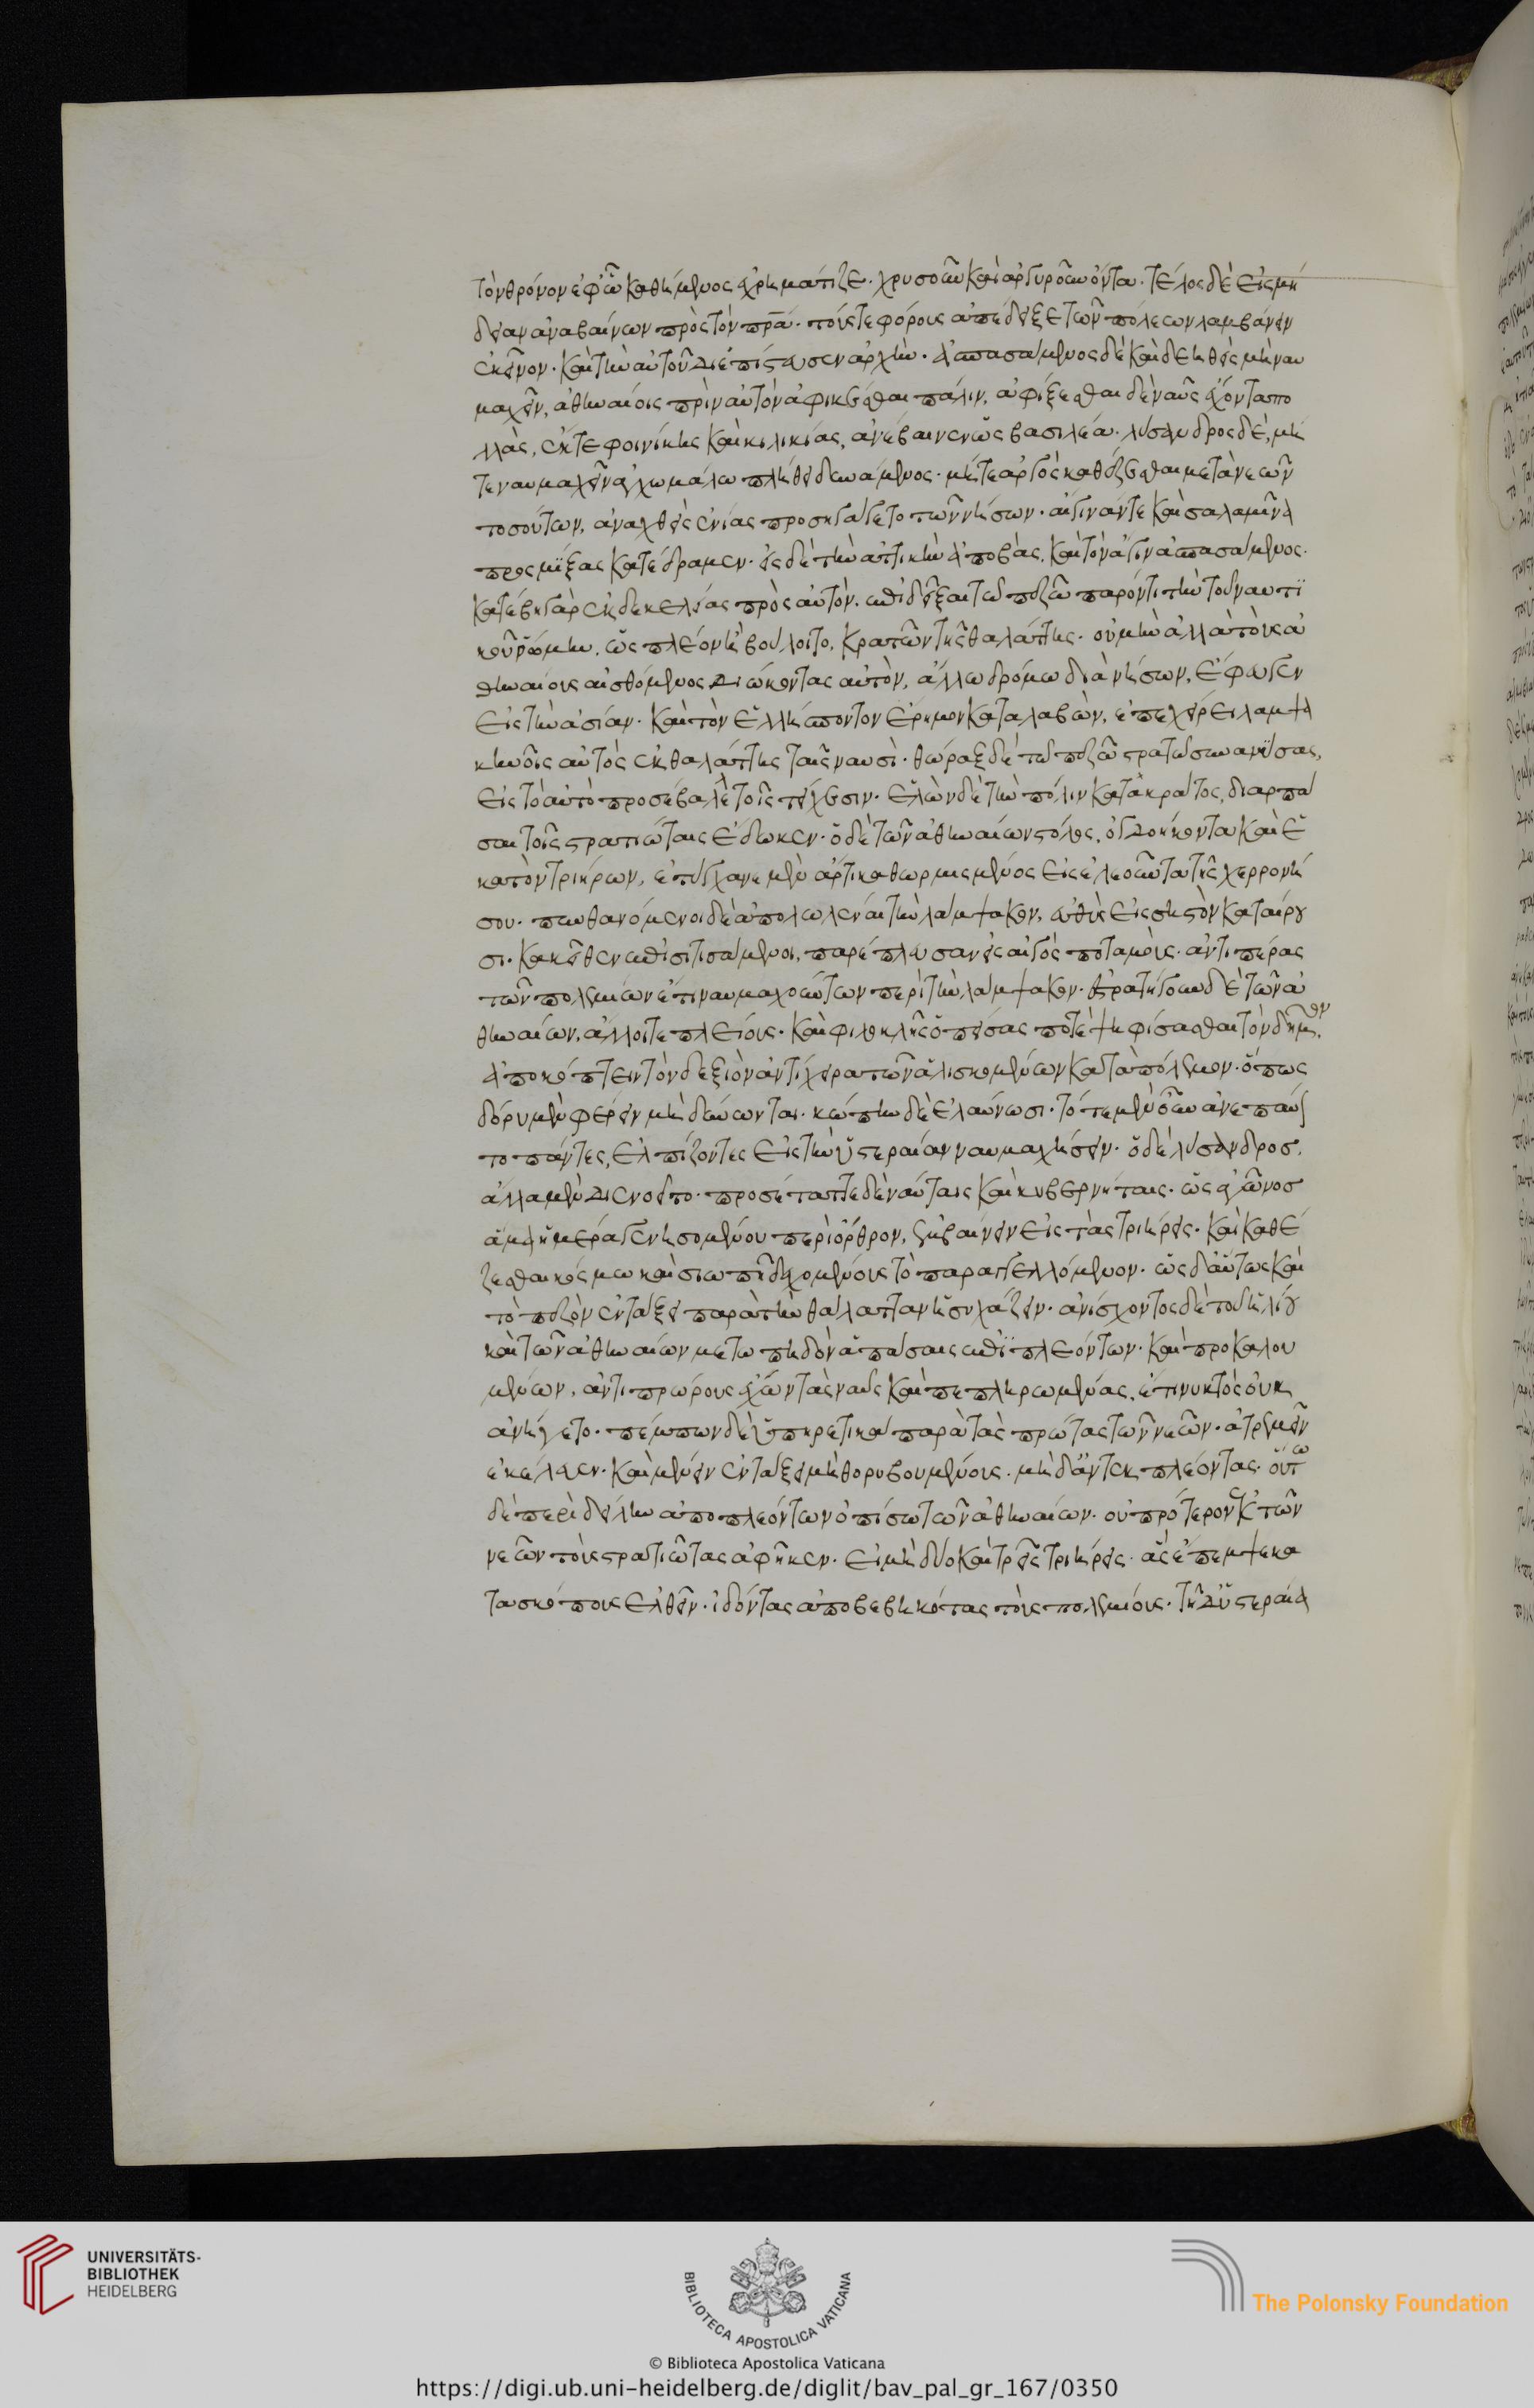 τὸν θρόνον ἐφ' ᾧ καθήμενος ἐχρημάτιζε. χρυσοῦν καὶ ἀργυροῦν ὄντα. τέλος δὲ εἰς μη
δείαν ἀναβαίνων πρὸς τὸν πρα. τούς τε φόρους ἀπέδειξε τῶν πόλεων λαμβάνειν
ἐκεῖνον. καὶ τὴν αὐτοῦ διεπίστευσεν ἀρχήν. ἀσπασάμενος δὲ καὶ δεηθεὶς μὴ ναυ
μαχεῖν, ἀθηναίοις πρὶν αὐτὸν ἀφικέσθαι πάλιν, ἀφίξεσθαι δὲ ναῦς ἔχοντα πο
λλὰς, ἔκ τε φοινίκης καὶ κιλικίας, ἀνέβαινεν ὡς βασιλέα. λύσανδρος δὲ, μή
τε ναυμαχεῖν ἀγχωμάλω πλήθει δυνάμενος. μήτε ἀργὸς καθέζεσθαι μετὰ νεῶν
τοσούτων, ἀναχθεὶς ἐνίας προσηγάγετο τῶν νήσων. αἴγινάν τε καὶ σαλαμῖνα
προσμίξας κατέδραμεν. εἰς δὲ τὴν ἀττικὴν ἀποβὰς, καὶ τὸν ἄγιν ἀσπασάμενος.
κατέβη γὰρ ἐκ δεκελείας πρὸς αὐτόν. ἐπιδεῖξαι τῷ πεζῷ παρόντι τὴν τοῦ ναυτι
κοῦ ῥώμην. ὡς πλέον ἢ βούλοιτο, κρατῶν τῆς θαλάττης. οὐ μὴν ἀλλὰ τοὺς ἀ
θηναίους αἰσθόμενος διώκοντας αὐτὸν, ἄλλω δρόμω διὰ νήσων, ἔφυγεν
εἰς τὴν ἀσίαν. καὶ τὸν ἑλλήσποντον ἔρημον καταλαβὼν, ἐπεχείρει λαμψα
κηνοῖς αὐτὸς ἐκ θαλάττης ταῖς ναυσὶ. θώραξ δὲ τῷ πεζῷ στρατῷ συνανύσας,
εἰς τὸ αὐτὸ προσέβαλε τοῖς τείχεσιν. ἑλὼν δὲ τὴν πόλιν κατάκρατος, διαρπά
σαι τοῖς στρατιώταις ἔδωκεν. ὁ δὲ τῶν ἀθηναίων στόλος, ὀγδοήκοντα καὶ ἑ
κατὸν τριήρων, ἐτύγχανε μὲν ἄρτι καθωρμισμένος εἰς ἐλεοῦντα τῆς χερρονή
σου. πυνθανόμενοι δὲ ἀπολωλέναι τὴν λάμψακον, εὐθὺς εἰς σηστὸν καταίρου
σι. κακεῖθεν ἐπισιτισάμενοι, παρέπλευσαν εἰς αἰγὸς ποταμούς. ἀντιπέρας
τῶν πολεμίων ἔτι ναυλοχούντων περὶ τὴν λάμψακον. ἐστρατήγουν δὲ τῶν ἀ
θηναίων, ἄλλοι τε πλείους. καὶ φιλοκλῆς ὁ πείσας ποτὲ ψηφίσασθαι τὸν δῆμον.
ἀποκόπτειν τὸν δεξιὸν ἀντίχειρα τῶν ἁλισκομένων κατὰ πόλεμον. ὅπως
δόρυ μὲν φέρειν μὴ δύνωνται. κώπην δὲ ἐλαύνωσι. τότε μὲν οὖν ἀνεπαύον
το πάντες, ἐλπίζοντες εἰς τὴν ὑστεραίαν ναυμαχήσειν. ὁ δὲ λύσανδρος,
ἄλλα μὲν διενοεῖτο. προσέταττε δὲ ναύταις καὶ κυβερνήταις. ὡς ἀγῶνος
ἅμα ἡμέρα γενησομένου περὶ ὄρθρον, ἐμβαίνειν εἰς τὰς τριήρεις. καὶ καθέ
ζεσθαι κόσμω καὶ σιωπῇ δεχομένους τὸ παραγγελλόμενον. ὡς δ' αὕτως καὶ
τὸ πεζὸν ἐν τάξει παρὰ τὴν θάλατταν ἡσυχάζειν. ἀνίσχοντος δὲ τοῦ ἡλίου
καὶ τῶν ἀθηναίων μετωπηδὸν ἁπάσαις ἐπιπλεόντων. καὶ προκαλου
μένων, ἀντιπρώρους ἔχων τὰς ναῦς καὶ πεπληρωμένας, ἔτι νυκτὸς οὐκ
ἀνήγετο. πέμπων δὲ ὑπηρετικὰ παρὰ τὰς πρώτας τῶν νεῶν. ἀτρεμεῖν
ἐκέλευεν. καὶ μένειν ἐν τάξει μὴ θορυβουμένους. μὴ δ' ἀντεκπλέοντας. οὕτω
δὲ περὶ δείλην ἀποπλεόντων ὀπίσω τῶν ἀθηναίων. οὐ πρότερον ἐκ τῶν
νεῶν τοὺς στρατιώτας ἀφῆκεν. εἰ μὴ δύο καὶ τρεῖς τριήρεις. ἃς ἔπεμψε κα
τασκόπους ἐλθεῖν. ἰδόντας ἀποβεβηκότας τοὺς πολεμίους. τῇ δ' ὑστεραία
UNIVERSITÄTS-
BIBLIOTHEK
HEIDELBERG
BIBLIOTECA APOSTOLICA VATICANA
The Polonsky Foundation
© Biblioteca Apostolica Vaticana
https://digi.ub.uni-heidelberg.de/diglit/bav_pal_gr_167/0350